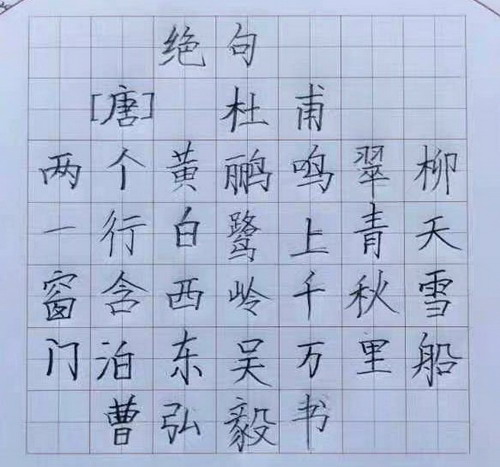 绝句
[唐] 杜甫
两个黄鹂鸣翠柳
一行白鹭上青天
窗含西岭千秋雪
门泊东吴万里船
曹弘毅书